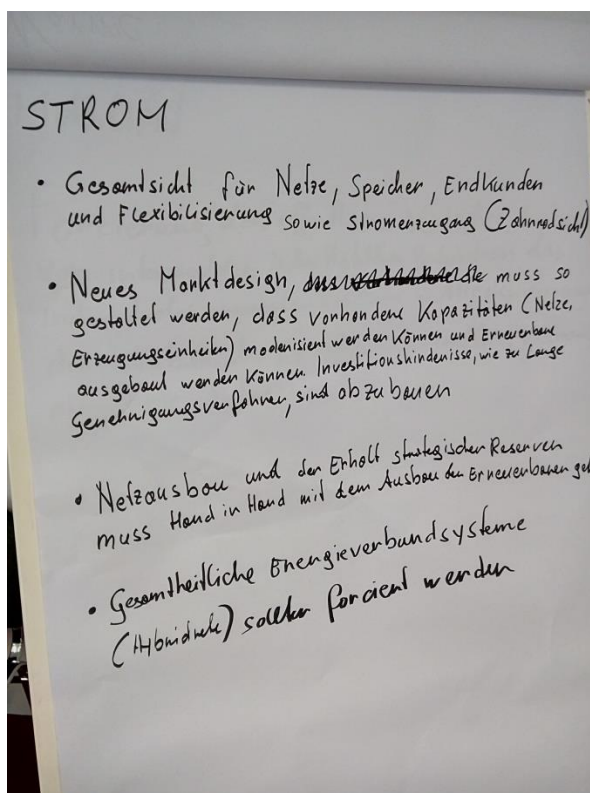 STROM
• Gesamtsicht für Netze, Speicher, Endkunden
und Flexibilisierung sowie Stromerzeugung (Zahnradsicht)
• Neues Marktdesign, muss so
gestaltet werden, dass vorhandene Kapazitäten (Netze,
Erzeugungseinheiten) modernisiert werden können und Erneuerbare
ausgebaut werden können. Investitionshindernisse, wie zu lange
Genehmigungsverfahren, sind abzubauen
• Netzausbau und der Erhalt strategischer Reserven
muss Hand in Hand mit dem Ausbau der Erneuerbaren
• Gesamtheitliche Energieverbundsysteme
(Hybridnetze) sollten forciert werden